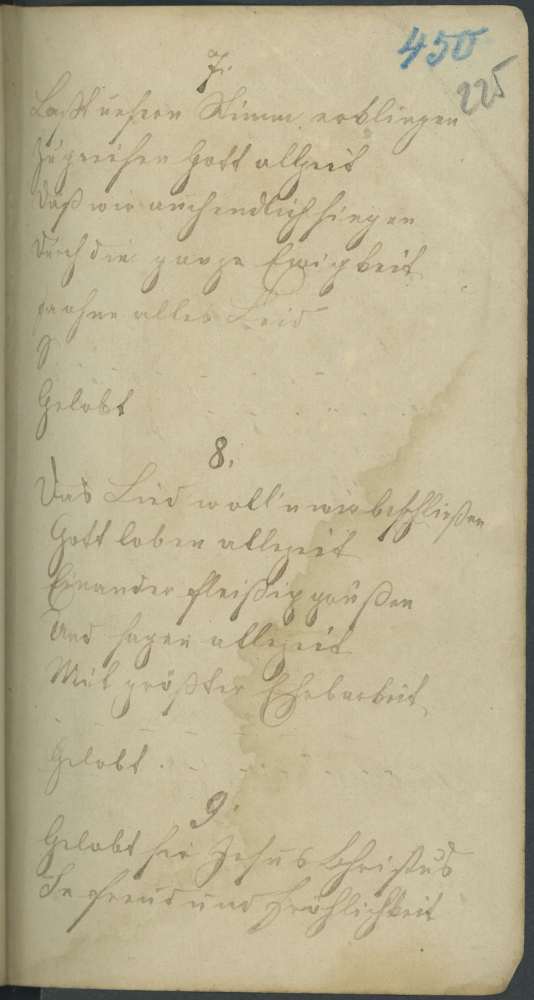 450
225
7.
Laßt unsern Stimm erklingen
Zu preißen Gott allzeit
Daß wir auch endlich singen
Durch die ganze Ewigkeit
ja ohne alles Leid
Gelobt
8.
Das Lied woll'n wir beschließen
Gott loben allezeit
Einander fleißig grüßen
Und sagen allezeit
Mit größter Ehrbarkeit
Gelobt
9.
Gelobt sei Jesus Christus
In Freud und Fröhlichkeit